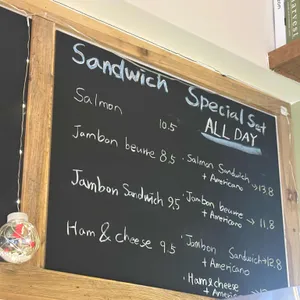 Sandwich Special Set
ALL DAY
Salmon 10.5
Jambon beurre 8.5
Jambon Sandwich 9.5
Ham & cheese 9.5
· Salmon Sandwich
+ Americano → 13.8
· Jambon beurre
+ Americano → 11.8
· Jambon Sandwich → 12.8
+ Americano
· Ham & cheese
+ Americano